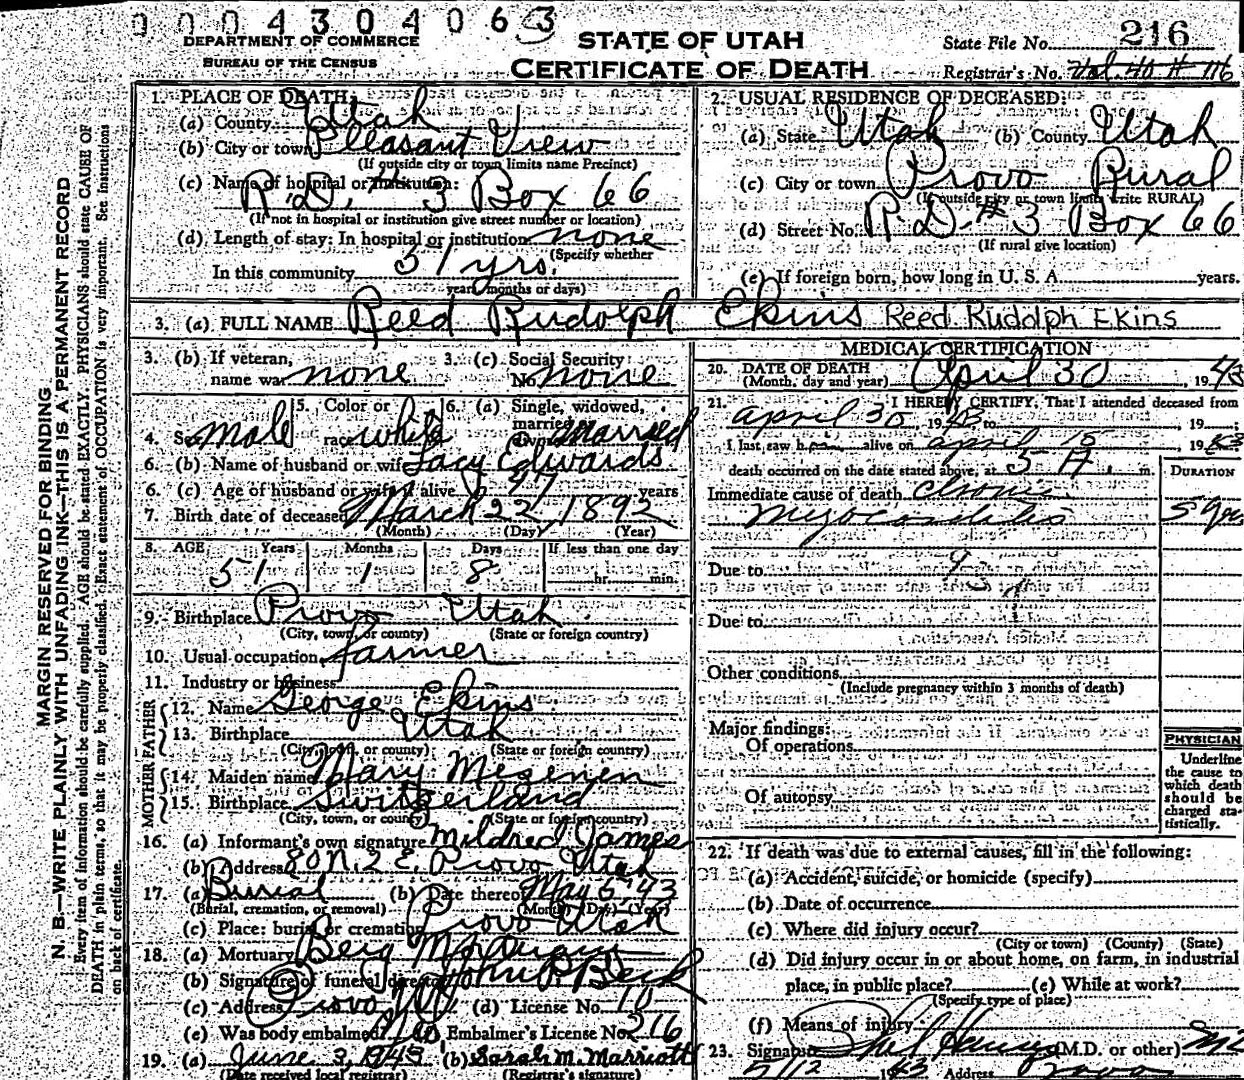 0 0 0 4 3 0 4 0 6 3
DEPARTMENT OF COMMERCE
BUREAU OF THE CENSUS
STATE OF UTAH
CERTIFICATE OF DEATH
State File No. 216
Registrar's No. Vol. 40 # 116
MARGIN RESERVED FOR BINDING
N. B.—WRITE PLAINLY WITH UNFADING INK—THIS IS A PERMANENT RECORD
Every item of information should be carefully supplied. AGE should be stated EXACTLY. PHYSICIANS should state CAUSE OF
DEATH in plain terms, so that it may be properly classified. Exact statement of OCCUPATION is very important. See Instructions
on back of certificate.
1. PLACE OF DEATH:
(a) County Utah
(b) City or town Pleasant View
(If outside city or town limits name Precinct)
(c) Name of hospital or institution:
R.D. # 3 Box 66
(If not in hospital or institution give street number or location)
(d) Length of stay: In hospital or institution none
(Specify whether
In this community 51 yrs.
years, months or days)
2. USUAL RESIDENCE OF DECEASED:
(a) State Utah (b) County Utah
(c) City or town Provo Rural
(If outside city or town limits write RURAL)
(d) Street No. R.D. # 3 Box 66
(If rural give location)
(e) If foreign born, how long in U. S. A. years.
3. (a) FULL NAME Reed Rudolph Ekins Reed Rudolph Ekins
3. (b) If veteran, name war none
3. (c) Social Security No. none
4. Sex male
5. Color or race white
6. (a) Single, widowed, married, divorced Married
6. (b) Name of husband or wife Lacy Edwards
6. (c) Age of husband or wife if alive 47 years
7. Birth date of deceased March 22, 1892
(Month) (Day) (Year)
8. AGE Years Months Days If less than one day
51 1 8 hr. min.
9. Birthplace Provo Utah
(City, town, or county) (State or foreign country)
10. Usual occupation farmer
11. Industry or business
FATHER
12. Name George Ekins
13. Birthplace Utah
(City, town, or county) (State or foreign country)
MOTHER
14. Maiden name Mary Megenen
15. Birthplace Switzerland
(City, town, or county) (State or foreign country)
16. (a) Informant's own signature Mildred James
(b) Address 80 N. 2 E. Provo Utah
17. (a) Burial (b) Date thereof May 5, '43
(Burial, cremation, or removal) (Month) (Day) (Year)
(c) Place: burial or cremation Provo Utah
18. (a) Mortuary Berg Mortuary
(b) Signature of funeral director John P Beck
(c) Address Provo (d) License No. 10
(e) Was body embalmed? Embalmer's License No. 216
19. (a) June 3, 1943 (b) Sarah M. Marriott
(Date received local registrar) (Registrar's signature)
MEDICAL CERTIFICATION
20. DATE OF DEATH
(Month, day and year) April 30, 1943
21. I HEREBY CERTIFY, That I attended deceased from
april 30, 19 to , 19 ;
I last saw h alive on april 15, 19
death occurred on the date stated above, at 5 A. m.
DURATION
Immediate cause of death chronic
myocarditis 5 years
Due to
Due to
Other conditions
(Include pregnancy within 3 months of death)
Major findings:
Of operations
Of autopsy
PHYSICIAN
Underline
the cause to
which death
should be
charged sta-
tistically.
22. If death was due to external causes, fill in the following:
(a) Accident, suicide, or homicide (specify)
(b) Date of occurrence
(c) Where did injury occur?
(City or town) (County) (State)
(d) Did injury occur in or about home, on farm, in industrial
place, in public place? (e) While at work?
(Specify type of place)
(f) Means of injury
23. Signature (M.D. or other) MD
5/12 1943 Address Provo